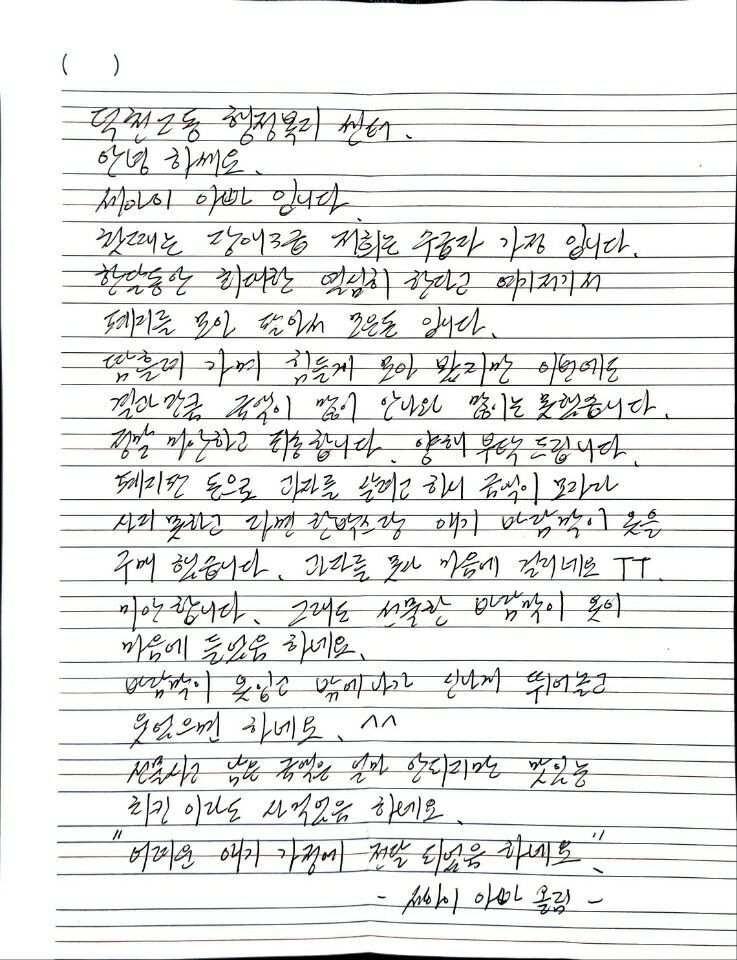 ( )
덕천2동 행정복지 센터.
안녕 하쎄요.
쎄아이 아빠 입니다.
첫때는 장애3급 저희는 수급자 가정 입니다.
한달동안 최대한 열심히 한다고 여기저기서
폐지를 모아 팔아서 모은돈 입니다.
땀흘려 가며 힘들게 모아 봤지만 이번에도
결과 만큼 금액이 많이 안나와 많이는 못했습니다.
정말 미안하고 죄송합니다. 양해 부탁 드립니다.
폐지판 돈으로 과자를 살려고 하니 금액이 모자라
사지 못하고 라면 한박스랑 애기 바람막이 옷을
구매 했습니다. 과자를 못사 마음에 걸리네요 ㅜㅜ.
미안합니다. 그래도 선물한 바람막이 옷이
마음에 들었음 하네요.
바람막이 옷입고 밖에나가 신나게 뛰어놀고
웃었으면 하네요. ^^
선물사고 남은 금액은 얼마 안되지만 맛있는
치킨 이라도 사먹었음 하네요.
"어려운 애기 가정에 전달 되었음 하네요."
- 쎄아이 아빠 올림 -